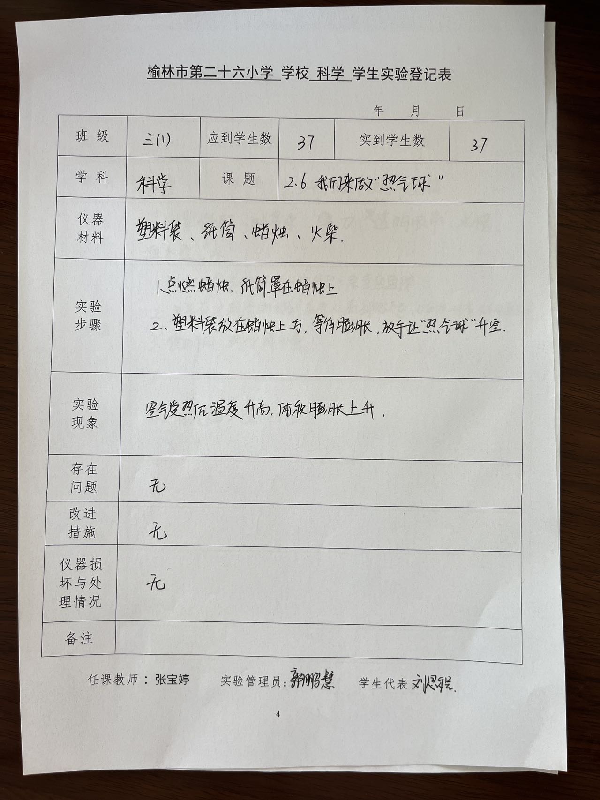 榆林市第二十六小学 学校 科学 学生实验登记表
年 月 日
班 级 三(1) 应到学生数 37 实到学生数 37
学 科 科学 课 题 2.6 我们来做“热气球”
仪器
材料 塑料袋、纸筒、蜡烛、火柴.
实验
步骤
1. 点燃蜡烛, 纸筒罩在蜡烛上
2. 塑料袋放在蜡烛上方, 等待膨胀, 放手让“热气球”升空.
实验
现象 空气受热后温度升高, 体积膨胀上升.
存在
问题 无
改进
措施 无
仪器损
坏与处
理情况 无
备注
任课教师：张宝婷 实验管理员: 学生代表 刘
4